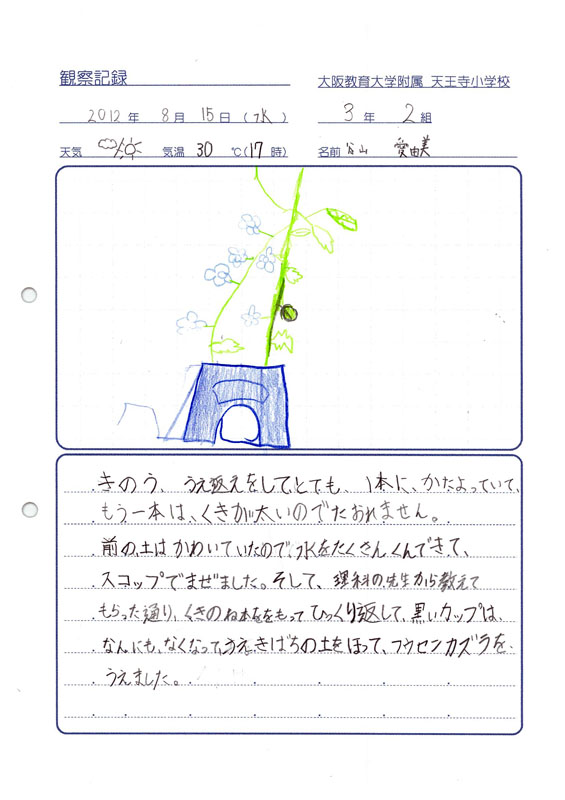 観察記録
大阪教育大学附属 天王寺小学校
2012年 8月 15日(水)
3年 2組
天気 気温 30 ℃(17時)
名前 谷山 愛由美
きのう、うえ返えをしてとても、1本に、かたよっていて、
もう一本は、くきが太いのでたおれません。
前の土はかわいていたので、水をたくさんくんできて、
スコップでまぜました。そして、理科の先生から教えて
もらった通り、くきのね本をもって ひっくり返して、黒いカップは、
なんにも、なくなって、うえきばちの土をほって、フウセンカズラを
うえました。